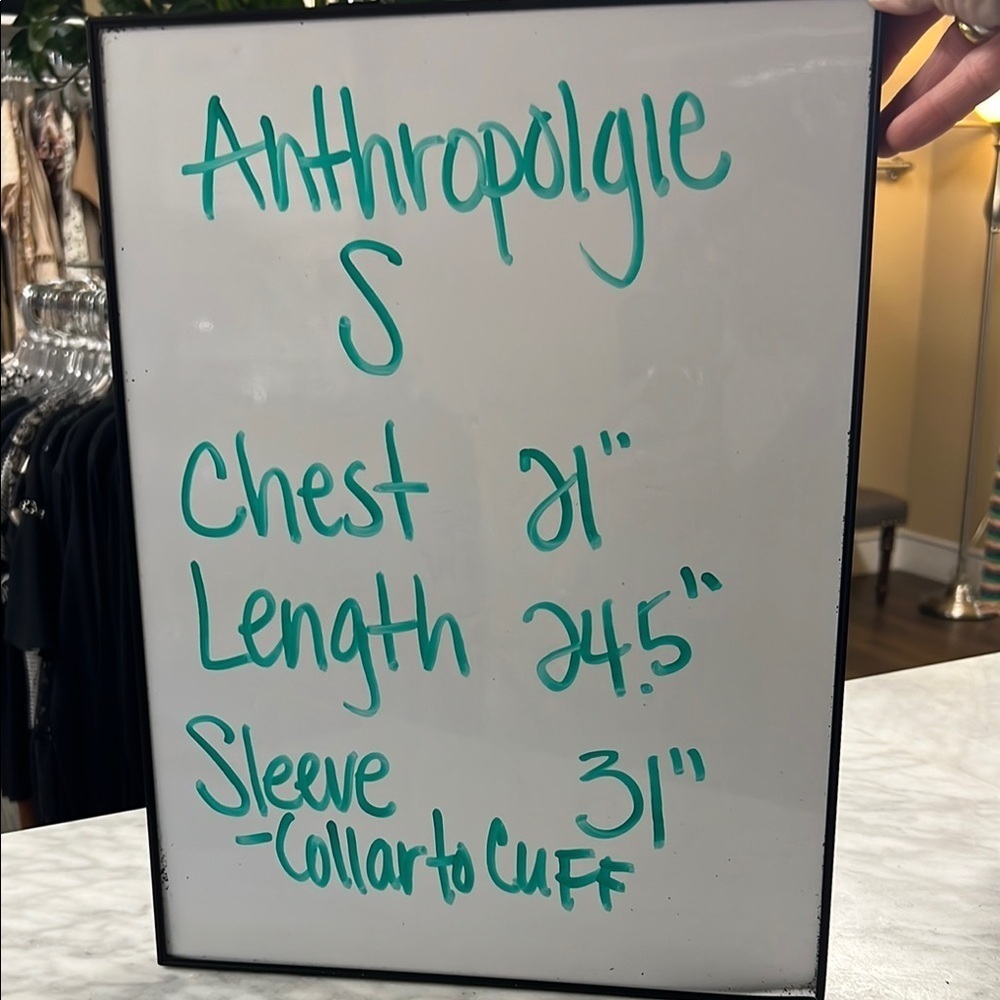 Anthropolgie
S
Chest 21"
Length 24.5"
Sleeve 31"
-Collar to CuFF